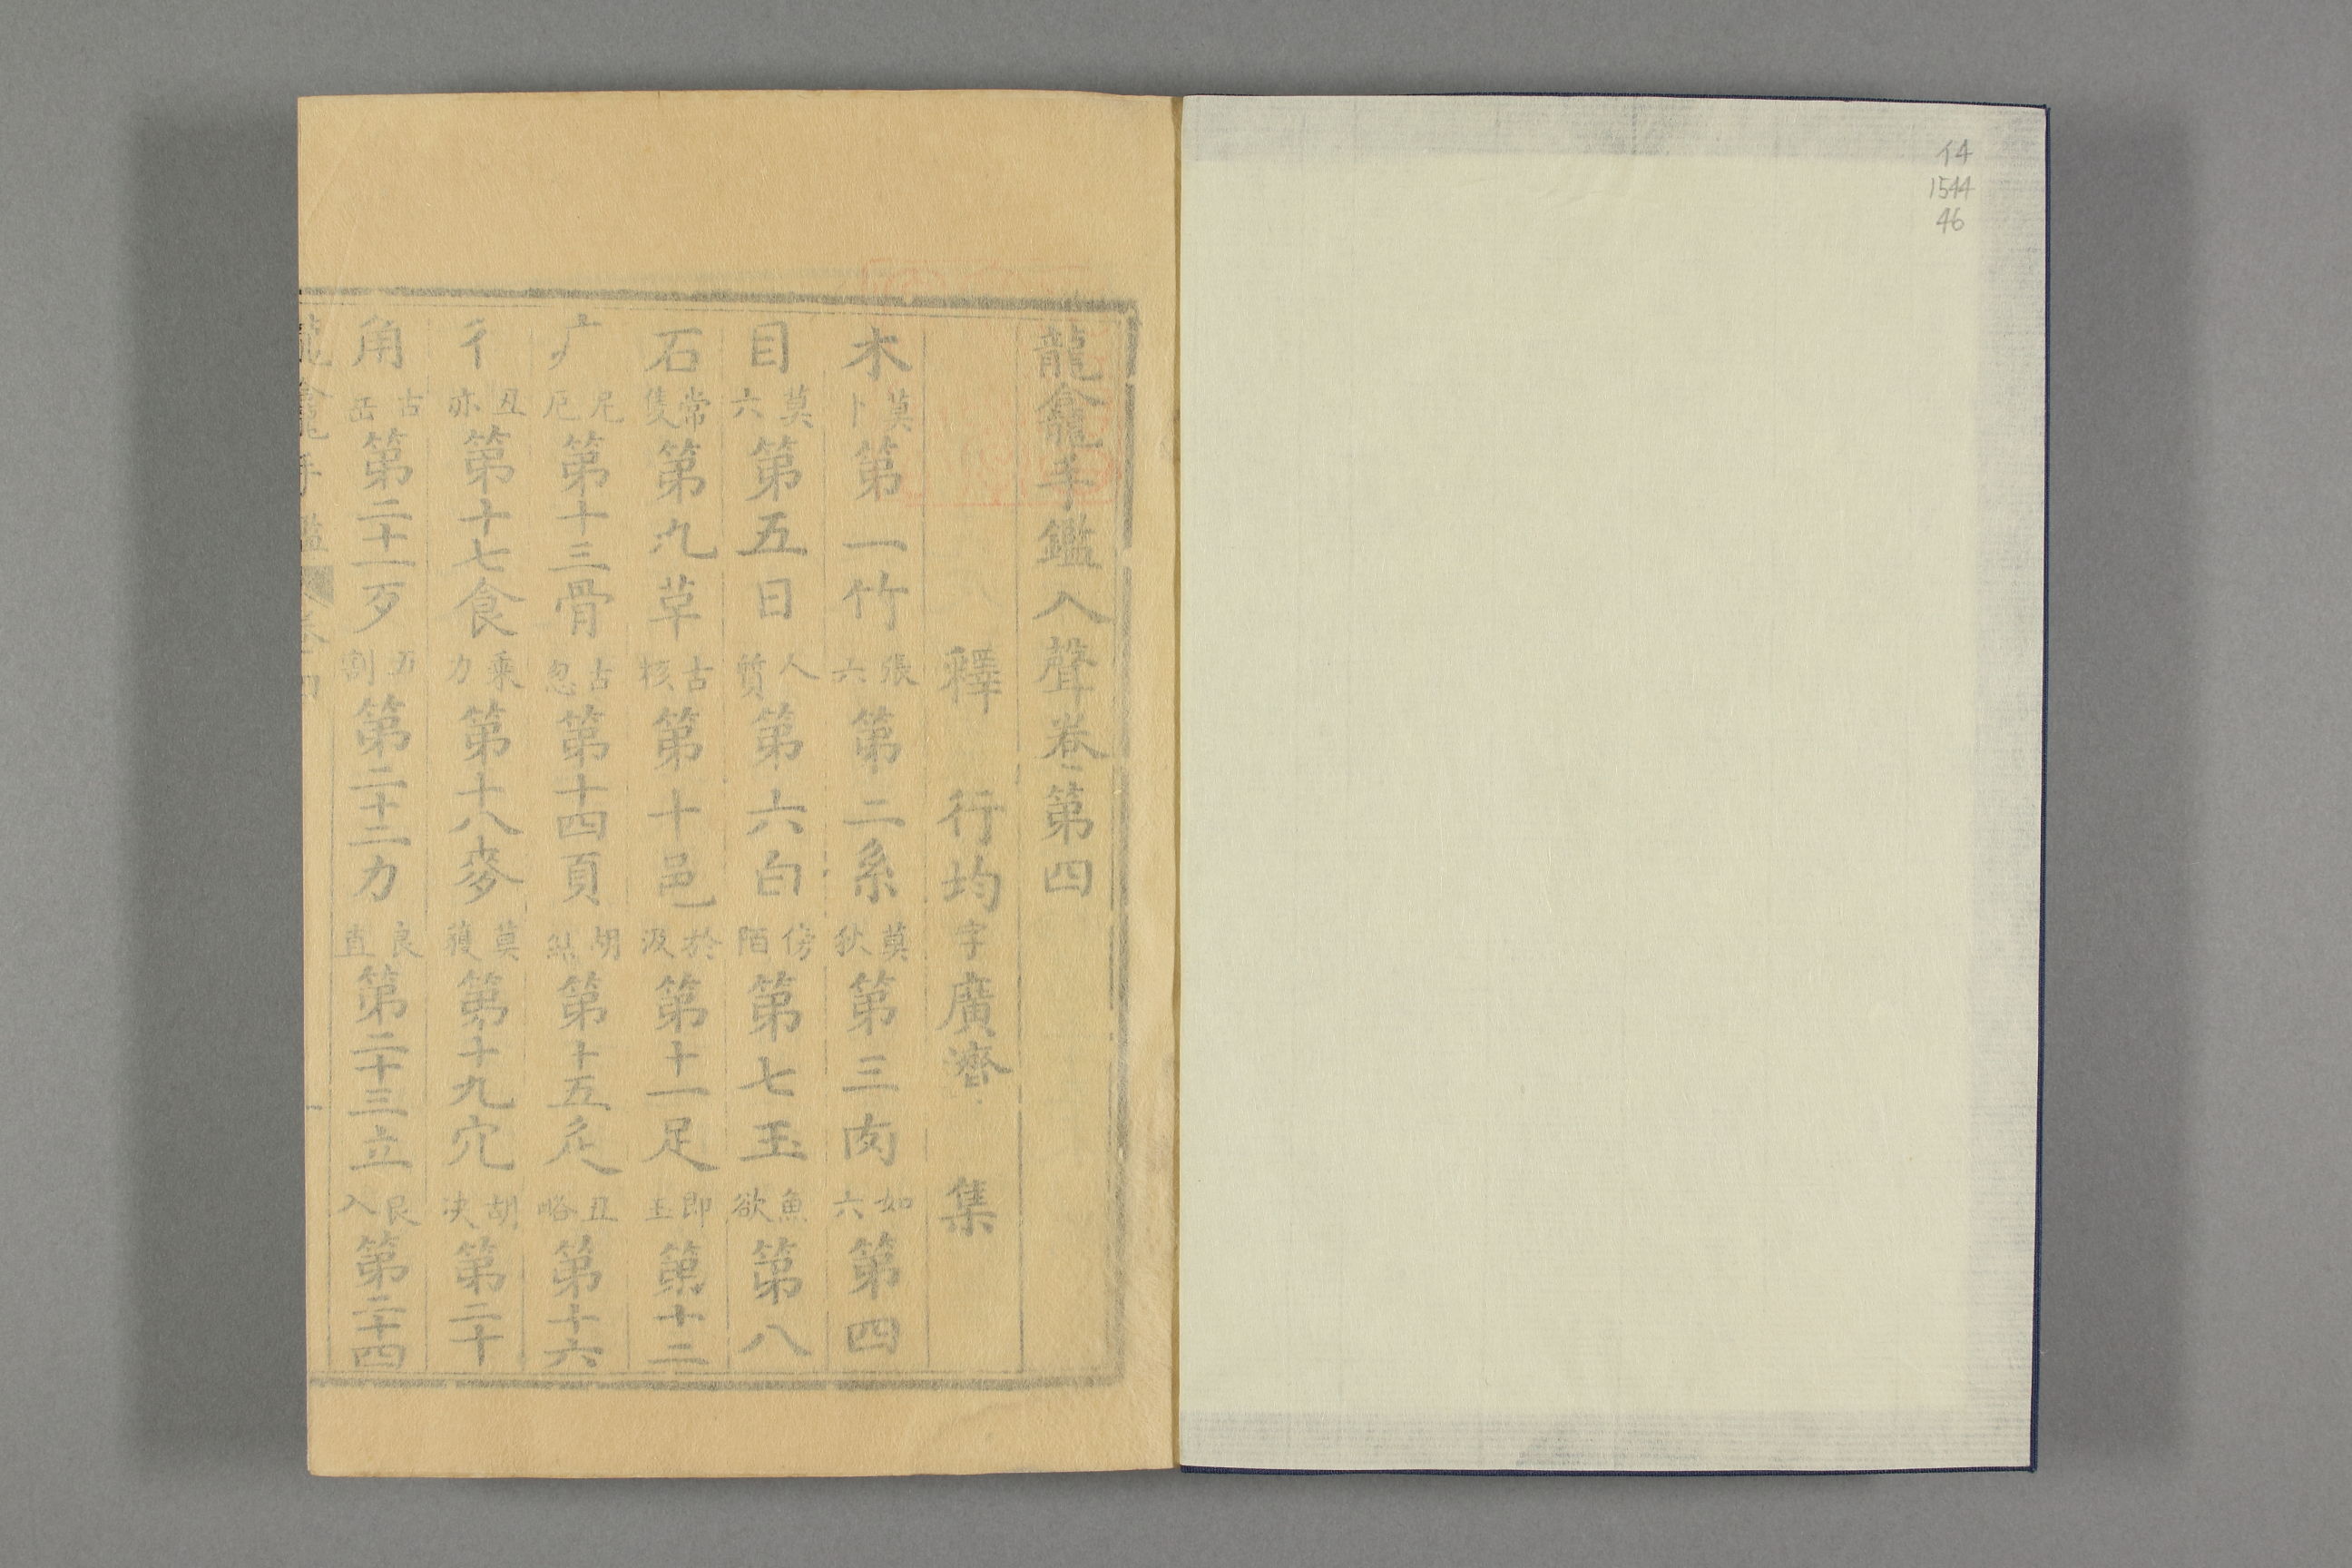 イ4
1544
46
龍龕手鑑入聲卷第四
釋 行均字廣濟 集
木莫卜第一竹張六第二糸莫狄第三肉如六第四
目莫六第五日人質第六白傍陌第七玉魚欲第八
石常隻第九革古核第十邑於汲第十一足即玉第十二
疒尼厄第十三骨古忽第十四頁胡結第十五辵丑略第十六
彳丑亦第十七食乘力第十八麥莫獲第十九穴胡决第二十
角古岳第二十一歹五割第二十二力良直第二十三立良入第二十四
龍龕手鑑 卷四 一